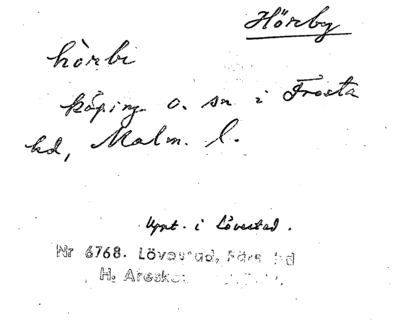 Hörby
hòrbi
köping o. sn i Frosta
hd, Malm. l.
Uppt. i Lövestad.
Nr 6768. Lövestad, Färs hd
H. Areskog